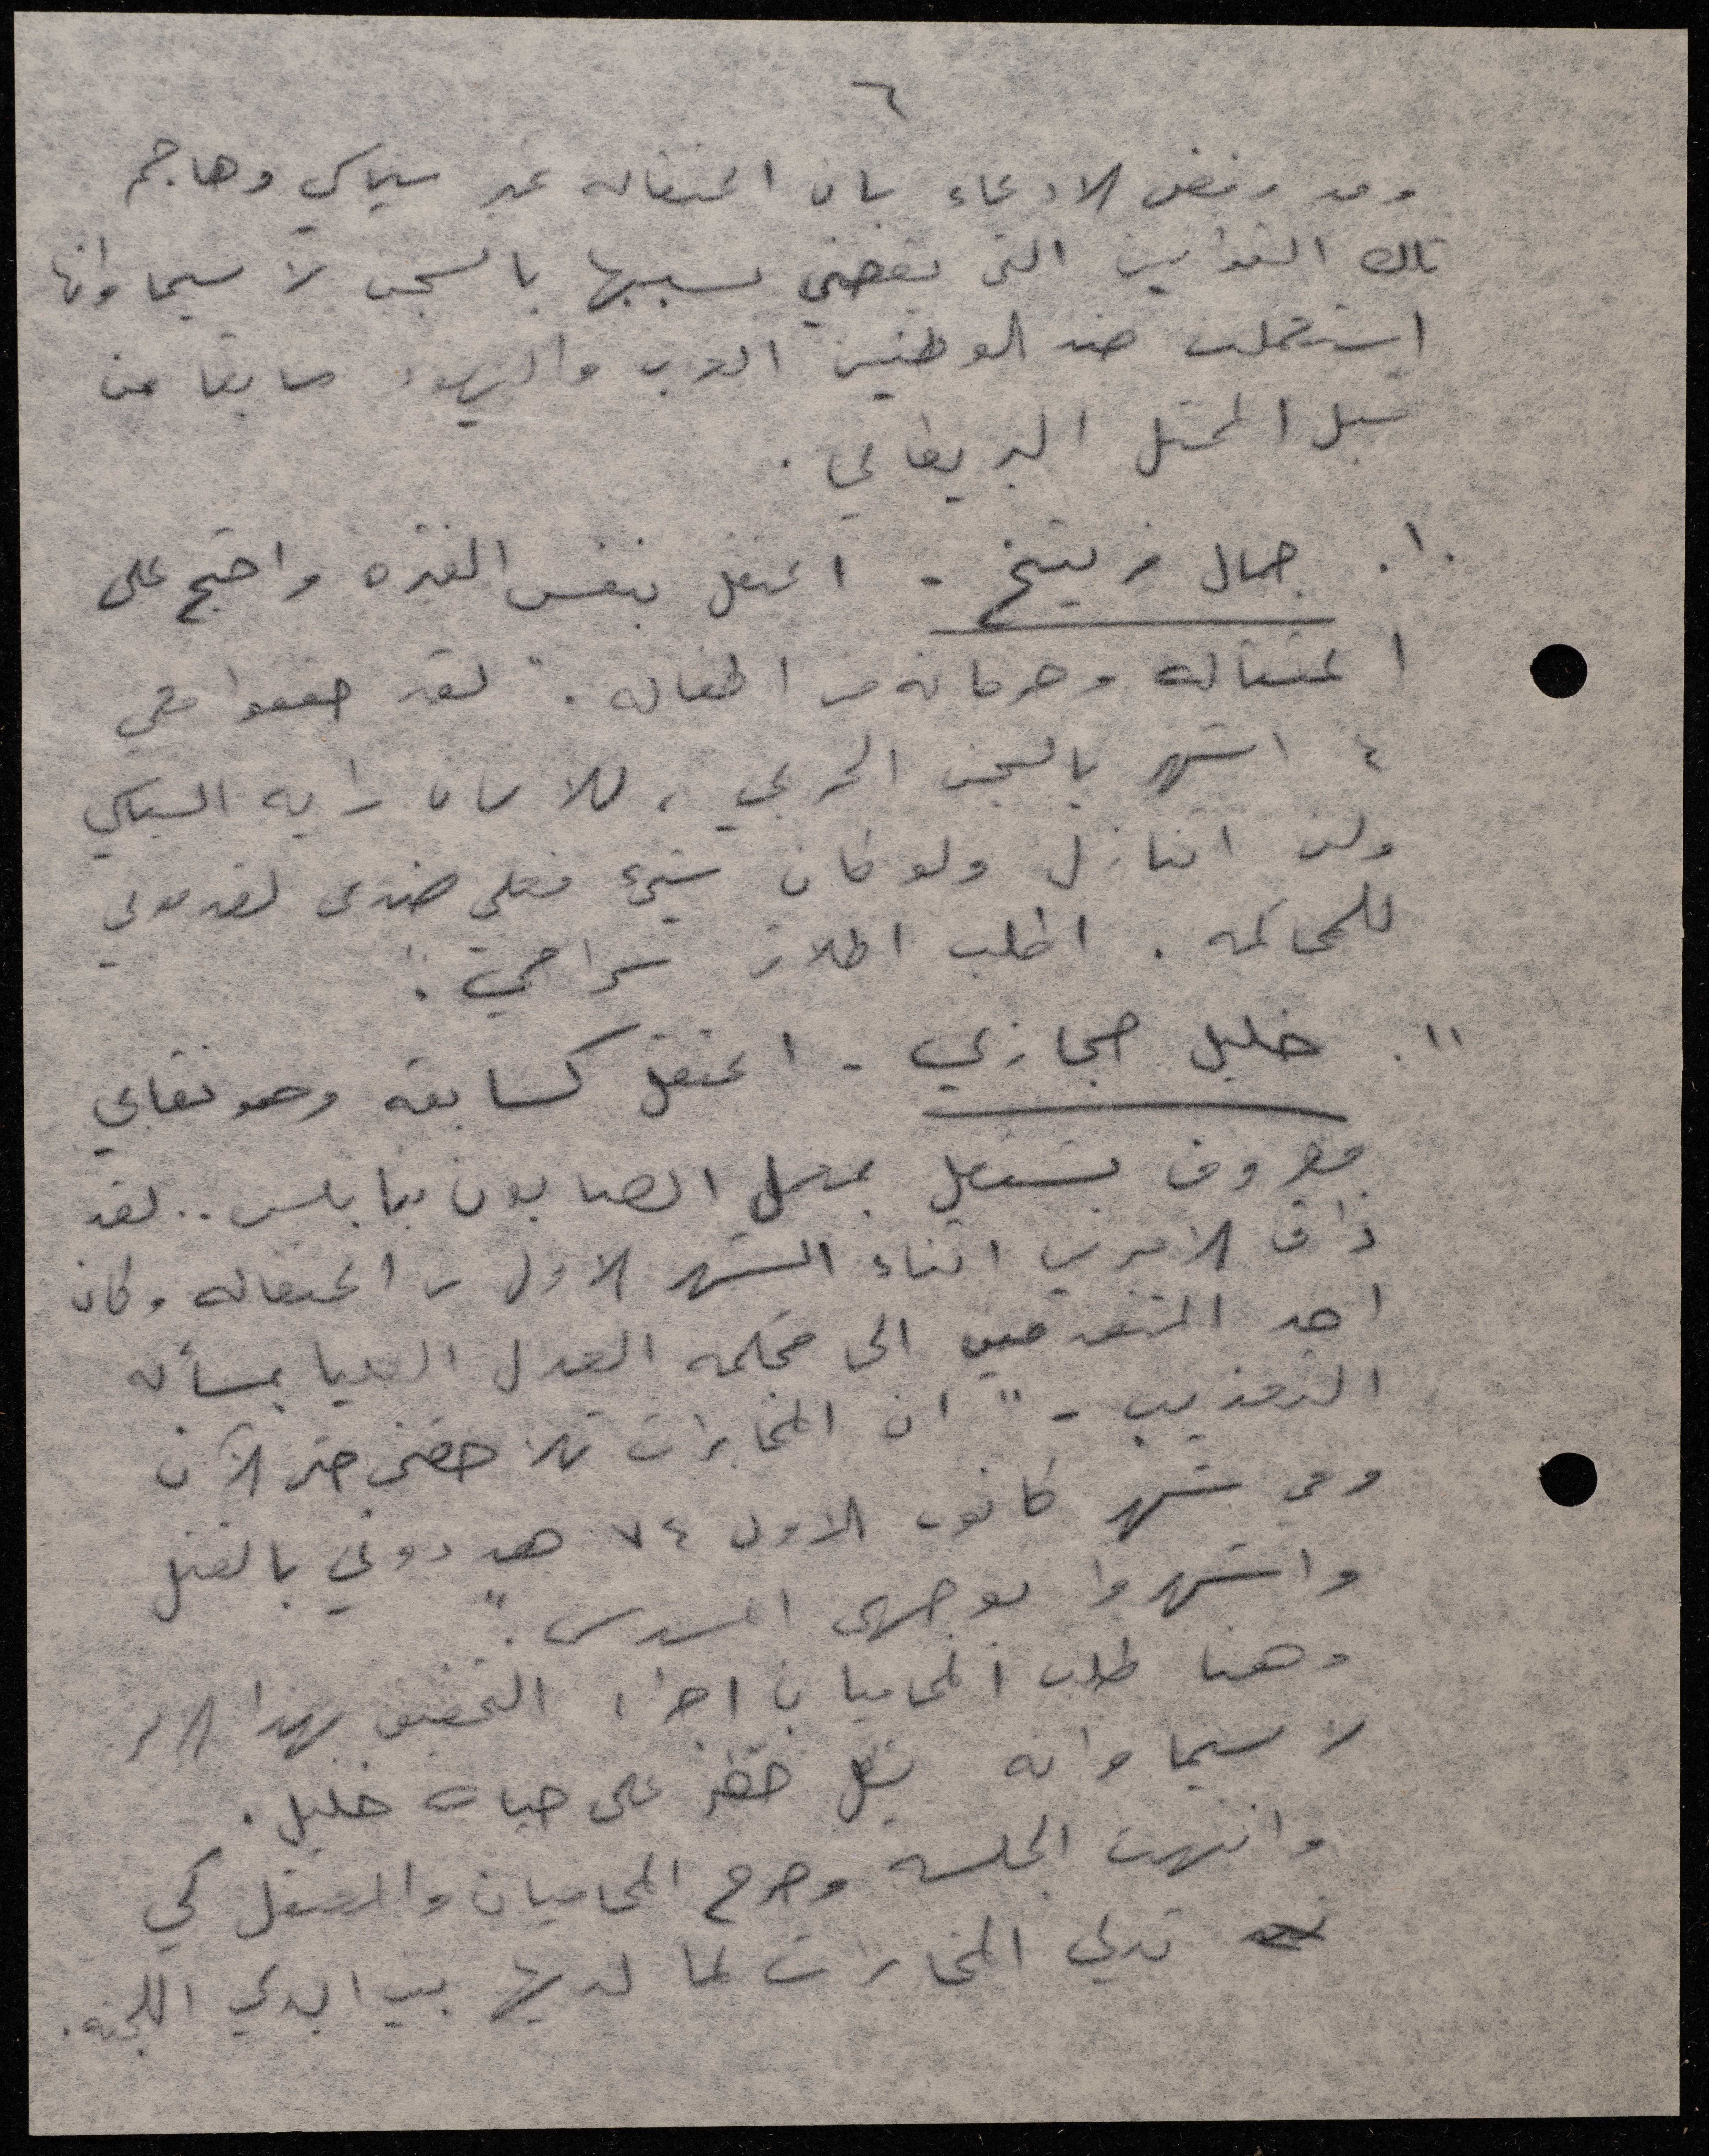 ٦
وقد رفض الادعاء بان اعتقاله غير سياسي وهاجم
تلك القوانين التي يقضي بسببها بالسجن لا سيما وانها
استعملت ضد الوطنيين العرب واليهود سابقا من
قبل المحتل البريطاني .
١٠. جمال فريتخ - اعتقل بنفس الفترة واحتج على
اعتقاله وحرمانه من اطفاله . " لقد حققوا معي
٤ اشهر بالسجن الحربي ، للانسان رايه السياسي
ولن اتنازل ولو كان شيئ فعلي ضدي لقدموني
للمحاكمه . اطلب اطلاق سراحي . "
١١. خليل حجازي - اعتقل كسابقه وهو نقابي
معروف يشتغل بمعمل الصابون بنابلس .. لقد
ذاق الامرين اثناء الشهر الاول من اعتقاله وكان
احد المتقدمين الى محكمه العدل العليا بمسأله
التعذيب - " ان المخابرات تلاحقني حتى الآن
وفي شهر كانون الاول ٧٤ هددوني بالقتل
واشهروا بوجهي المسدس . "
وهنا طلب المحاميان اجراء التحقيق بهذا الامر
لا سيما وانه يشكل خطر على حياة خليل .
وانتهت الجلسه وخرج المحاميان والمعتقل كي
تدلي المخابرات لما لديها بين ايدي اللجنه .